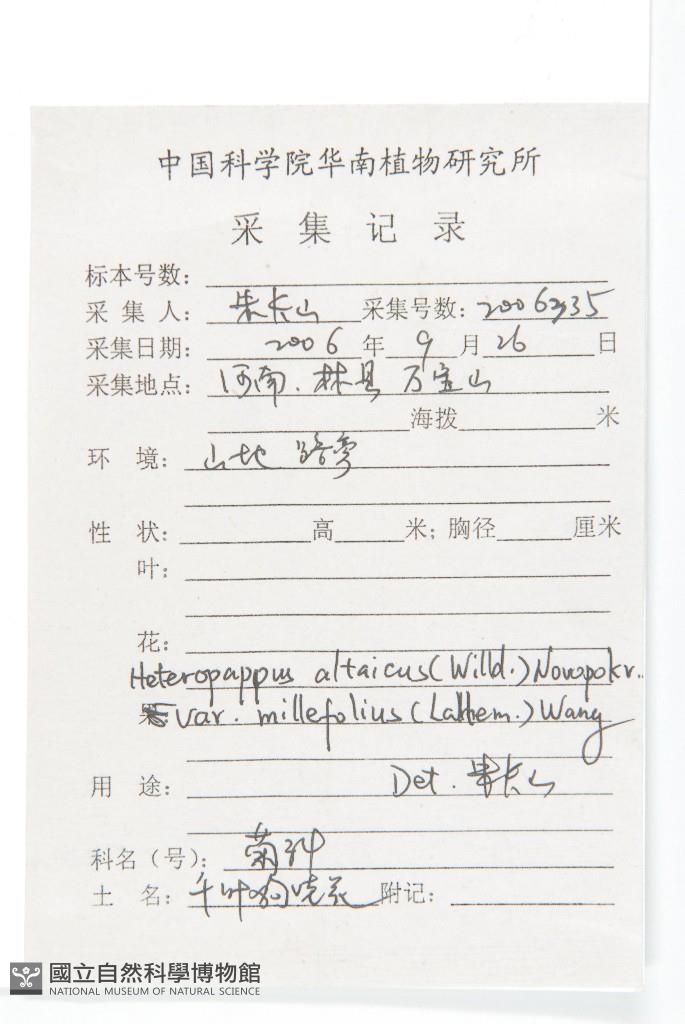 中国科学院华南植物研究所
采集记录
标本号数：
采集人：朱长山 采集号数：2006335
采集日期：2006年9月26日
采集地点：河南.林县万宝山
海拨 米
环境：山地路旁
性状： 高 米；胸径 厘米
叶：
花：
Heteropappus altaicus (Willd.) Novopokr.
var. millefolius (Wang
用途： Det. 朱长山
科名（号）：菊科
土名：千叶狗哇花 附记：
國立自然科學博物館
NATIONAL MUSEUM OF NATURAL SCIENCE